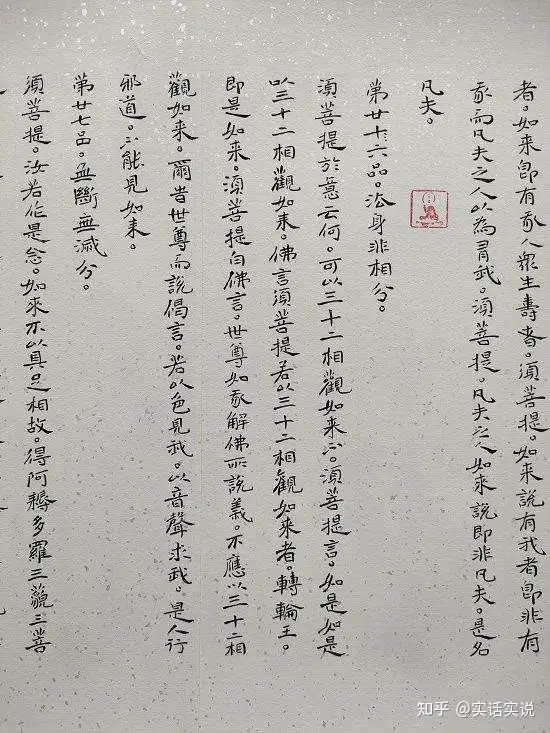 者。如來即有我人眾生壽者。須菩提。如來說有我者即非有
我而凡夫之人以為有我。須菩提。凡夫之人如來說即非凡夫。是名
凡夫。
第廿十六品。法身非相分。
須菩提於意云何。可以三十二相觀如來不。須菩提言。如是如是
以三十二相觀如來。佛言須菩提若以三十二相觀如來者。轉輪王。
即是如來。須菩提白佛言。世尊如我解佛所說義。不應以三十二相
觀如來。爾時世尊而說偈言。若以色見我。以音聲求我。是人行
邪道。不能見如來。
第廿七品。無斷無滅分。
須菩提。汝若作是念。如來不以具足相故。得阿耨多羅三藐三菩
知乎 @实话实说